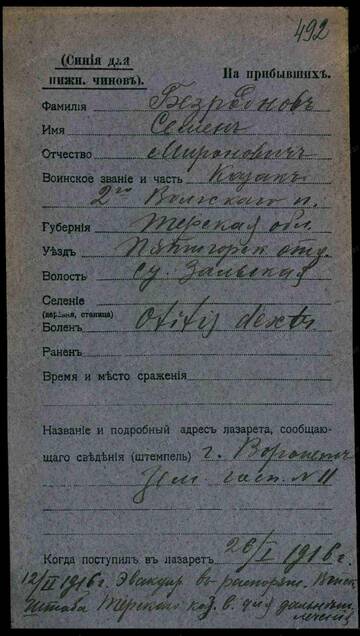 492
(Синія для нижн. чиновъ).
На прибывшихъ.
Фамилія
Имя Семенъ
Отчество Мироновичъ
Воинское званіе и часть Казакъ
2го Волжскаго п.
Губернія Терская обл.
Уѣздъ Пятигорск отд.
Волость
Селеніе
(деревня, станица)
Боленъ Otitis dextr.
Раненъ
Время и мѣсто сраженія
Названіе и подробный адресъ лазарета, сообщаю-
щаго свѣдѣнія (штемпель) г. Воронежъ
Зем. госп. №11
Когда поступилъ въ лазаретъ 26/I 1916 г.
12/II 1916 г. Эвакуир въ распоряж. Войск
Штаба Терскаго каз. в. для дальнѣйш
леченія